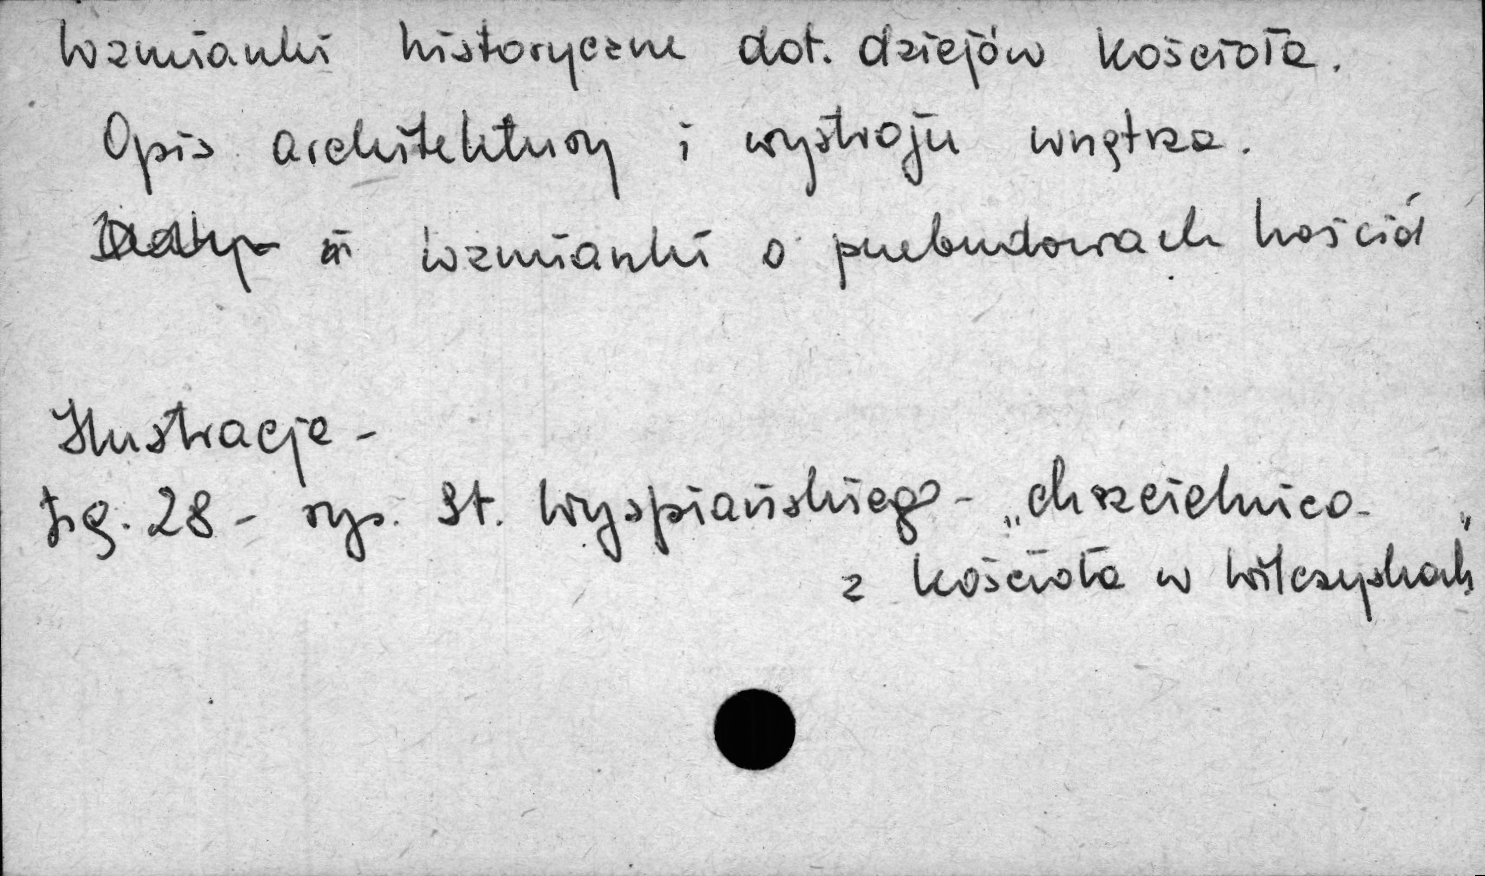 Wzmianki historyczne dot. dziejów kościoła.
Opis architektury i wystroju wnętrza.
wzmianki o przebudowach kościoł
Ilustracje -
fig. 28 - rys. St. Wyspiańskiego - „chrzcielnica
z kościoła w Wilczyskach"